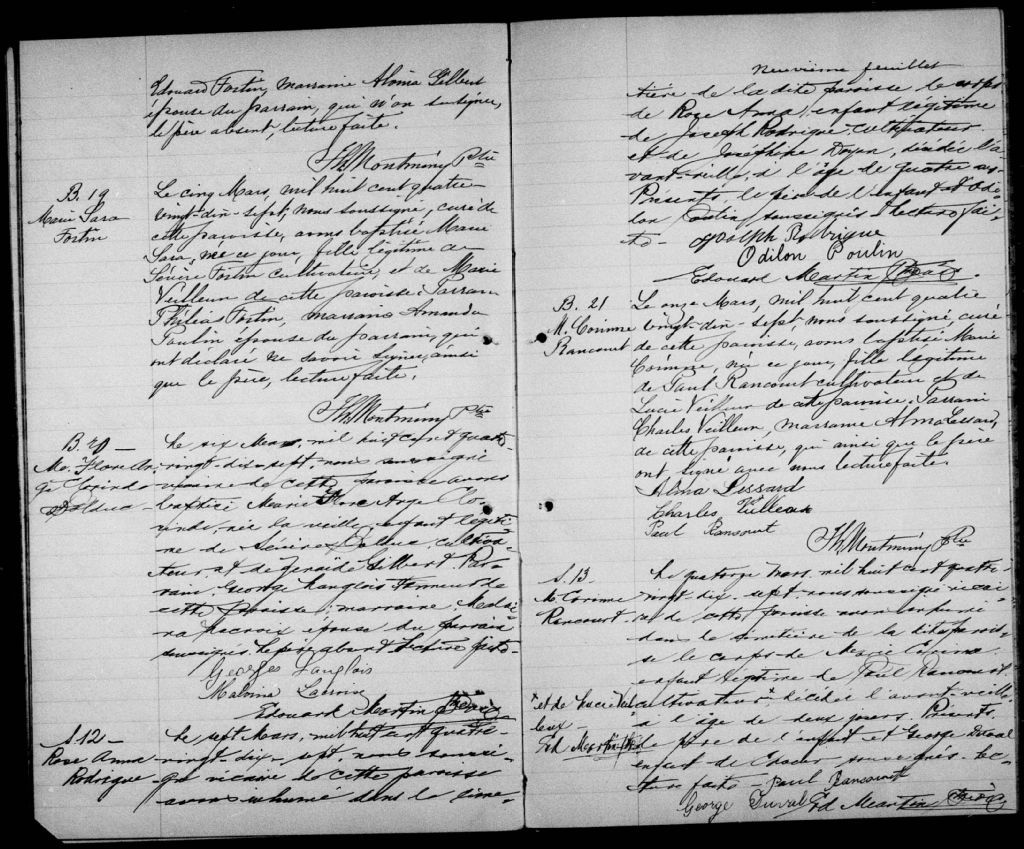 Edouard Fortin, marraine Alvina Gilbert
épouse du parrain, qui n'on su signer,
le père absent, lecture faite.
Th Montminy Ptre
B. 19
Marie Sara
Fortin
Le cinq Mars, mil huit cent quatre-
vingt-dix-sept, nous soussigné, curé de
cette paroisse, avons baptisé Marie
Sara, née ce jour, fille légitime de
Sévère Fortin cultivateur, et de Marie
Veilleux de cette paroisse. Parrain
Thélias Fortin, marraine Amanda
Poulin épouse du parrain, qui
ont déclaré ne savoir signer, ainsi
que le père, lecture faite.
Th Montminy Ptre
B. 20
M. Flore An-
ge Clorinde
Bolduc
Le six Mars, mil huit cent quatre-
vingt-dix-sept, nous soussigné
vicaire de cette paroisse avons
baptisé Marie Flore Ange Clo-
rinde, née la veille, enfant légiti-
me de Sévère Bolduc, cultiva-
teur, et de Zénaïde Gilbert. Par-
rain, George Langlois
cette paroisse; marraine,
Lacroix épouse du parrain
soussignés. Le père absent. Lecture faite-
Georges Langlois
Malvina Lacroix
Edouard Martin Ptre
S. 12-
Rose Anna
Rodrigue-
Le sept Mars, mil huit cent quatre-
vingt-dix-sept, nous soussi-
gné vicaire de cette paroisse
avons inhumé dans le cime-
neuvième feuillet
tière de la dite paroisse le corps
de Rose Anna, enfant légitime
de Joseph Rodrigue, cultivateur
et de Joséphine Doyon, décédée l'a-
vant-veille, à l'âge de quatre ans
Présents, le père de l'enfant et Odi-
lon Poulin, soussignés. Lecture fai-
te-
Joseph Rodrigue
Odilon Poulin
Edouard Martin Ptre
B. 21
M. Corinne
Rancourt
Le onze Mars, mil huit cent quatre
vingt-dix-sept, nous soussigné, curé
de cette paroisse, avons baptisé Marie
Corinne, née ce jour, fille légitime
de Paul Rancourt cultivateur et de
Lucie Veilleux de cette paroisse, Parrain
Charles Veilleux, marraine Alma Lessard,
de cette paroisse, qui ainsi que le père
ont signé avec nous lecture faite.
Alma Lessard
Charles Vuilleux
Paul Rancourt
Th Montminy Ptre
S. 13-
M. Corinne
Rancourt-
Le quatorze Mars, mil huit cent quatre
vingt-dix-sept nous soussigné vicai-
re de cette paroisse avons inhumé
dans le cimetière de la dite parois-
se le corps de Marie Corinne
enfant légitime de Paul Rancourt
cultivateur* décédée l'avant-veille
à l'âge de deux jours. Présents,
le père de l'enfant et George Duval
enfant de choeur- soussignés- lec-
ture faite-
*et de Lucie Veil-
leux-
Ed Martin Ptre
Paul Rancourt
George Duval
Ed Martin Ptre